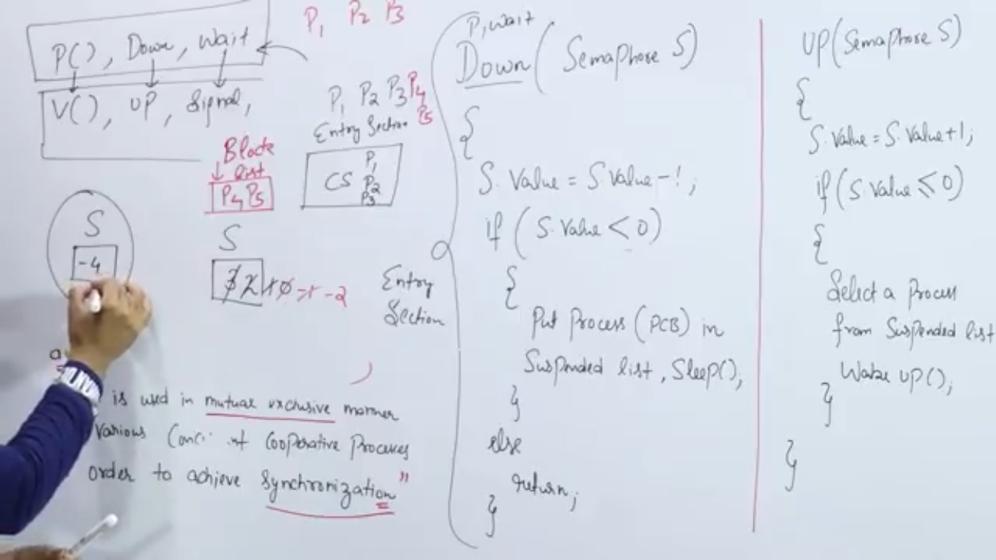 P(), Down, Wait
V(), UP, Signal,
P1 P2 P3
P1 P2 P3 P4
P5
Entry Section
Block
list
P4 P5
CS P1
P2
P3
S
-4
S
3 2 1 0 -1 -2
Entry
Section
is used in mutual exclusive manner
Various Conc nt Cooperative Processes
order to achieve Synchronization"
P, Wait
Down ( Semaphore S)
{
S. Value = S Value-1;
if ( S. Value < 0)
{
Put Process (PCB) in
Suspended list, Sleep();
}
else
return;
}
UP(Semaphore S)
{
S. Value = S. Value+1;
if (S. Value ≤ 0)
{
Select a Process
from Suspended list
Wake UP();
}
}